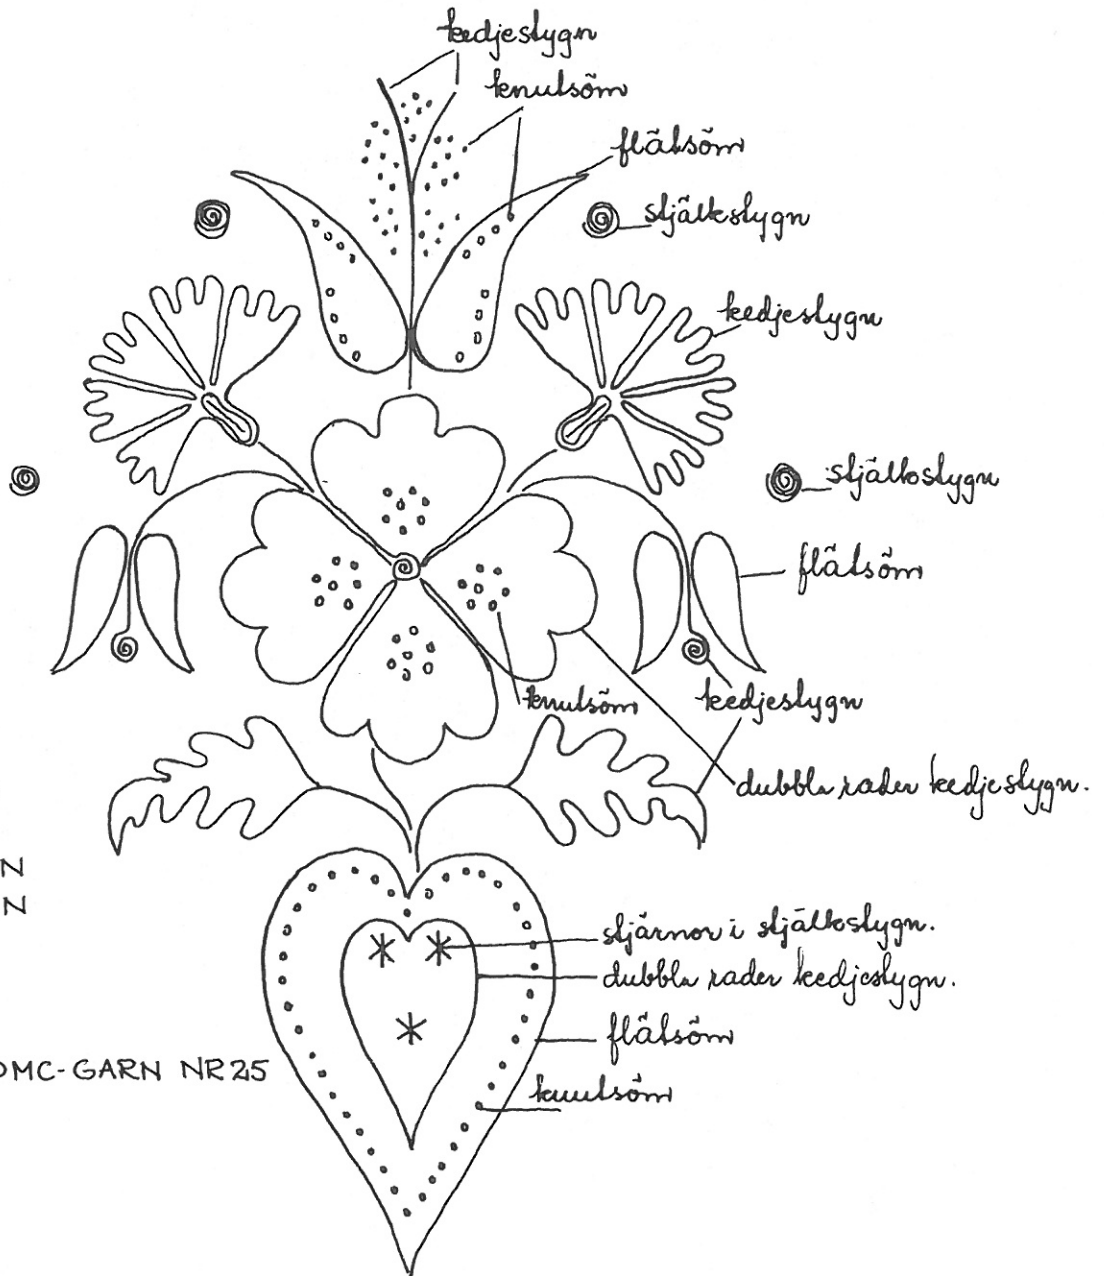 kedjestygn
knutsöm
flätsöm
stjälkstygn
kedjestygn
stjälkstygn
flätsöm
knutsöm
kedjestygn
dubbla rader kedjestygn.
N
N
stjärnor i stjälkstygn.
dubbla rader kedjestygn.
flätsöm
DMC-GARN NR 25
knutsöm